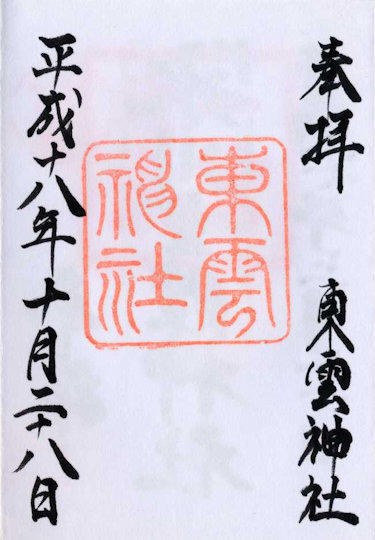 奉拝
東雲神社
東雲
神社
平成十八年十月二十八日